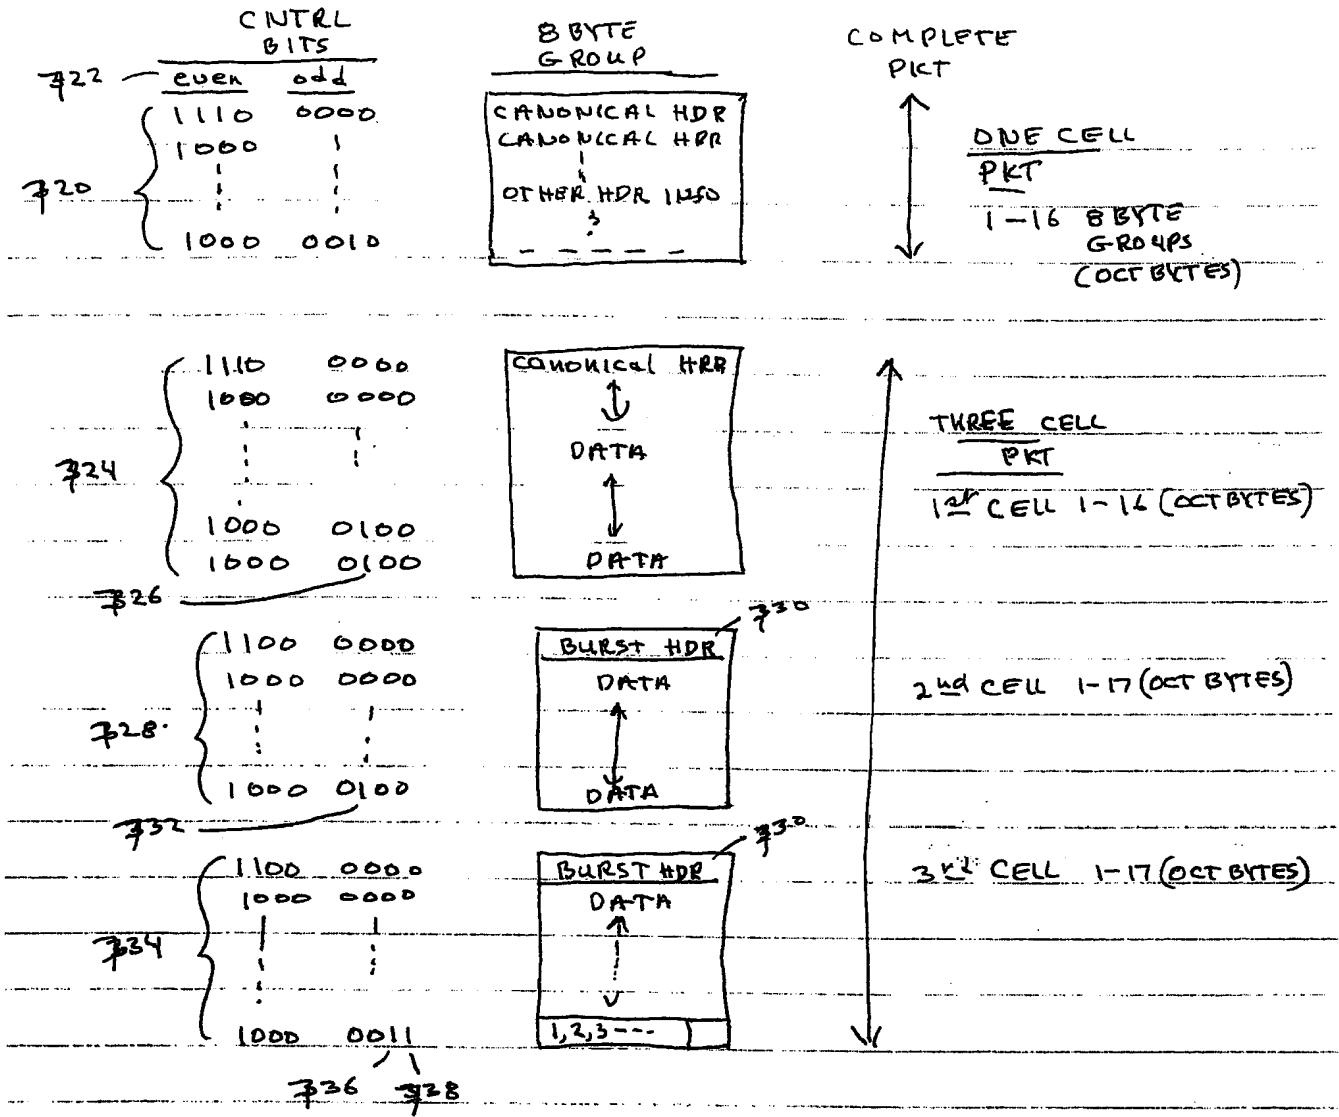 CNTRL
BITS
8 BYTE
GROUP
COMPLETE
PKT
722
even odd
1110 0000
1000
720
1000 0010
CANONICAL HDR
CANONICAL HDR
OTHER HDR INFO
ONE CELL
PKT
1-16 8 BYTE
GROUPS
(OCT BYTES)
1110 0000
1000 0000
724
1000 0100
1000 0100
726
Canonical HDR
DATA
DATA
THREE CELL
PKT
1st CELL 1-16 (OCT BYTES)
1100 0000
1000 0000
728
1000 0100
732
730
BURST HDR
DATA
DATA
2nd CELL 1-17 (OCT BYTES)
1100 0000
1000 0000
734
1000 0011
736 738
730
BURST HDR
DATA
1,2,3---
3rd CELL 1-17 (OCT BYTES)